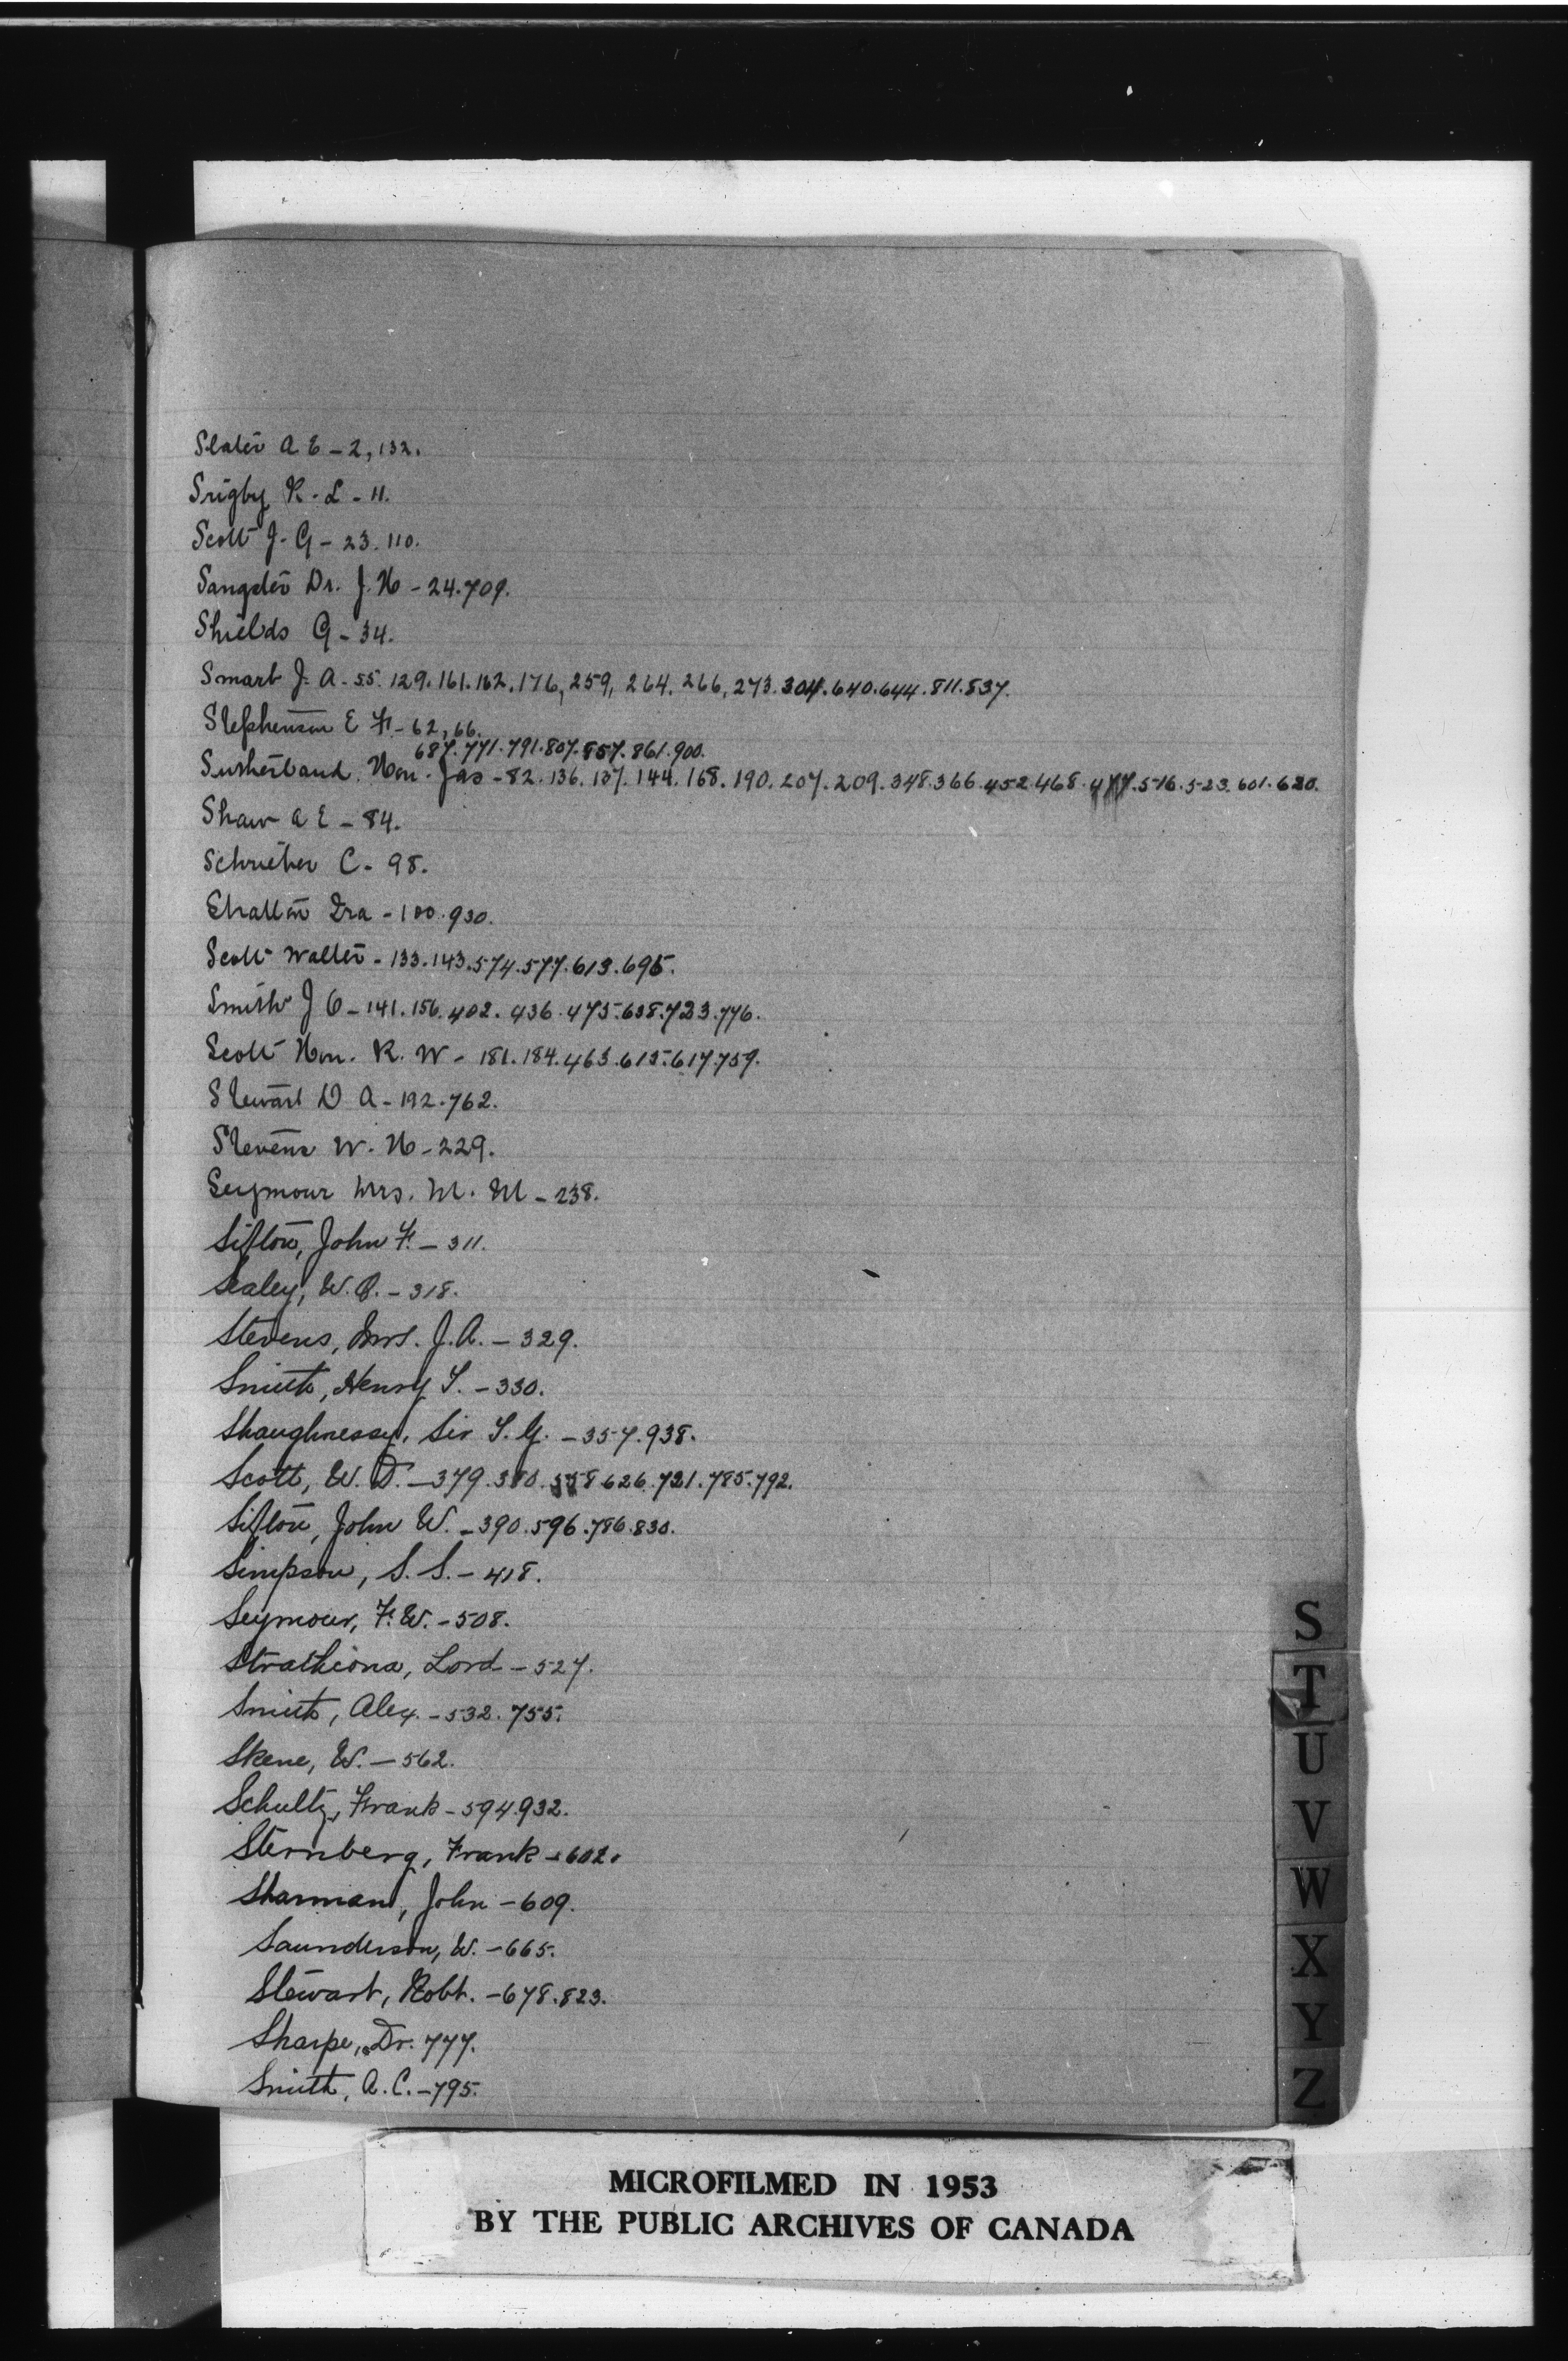 Slater A E - 2, 132.
Srigby R. L - 11.
Scott J. G - 23. 110.
Sangster Dr. J. H - 24. 709.
Shields G - 34.
Smart J. A - 55. 129. 161. 162. 176, 259, 264. 266, 273. 304. 640. 644. 811. 837.
Stephenson E F. - 62, 66.
687. 771. 791. 807. 857. 861. 900.
Sutherland. Hon. Jas - 82. 136. 137. 144. 168. 190. 207. 209. 348. 366. 452. 468. 477. 516. 523. 601. 620.
Shaw A E - 84.
Schrieber C - 98.
Stratton Ira - 100. 930.
Scott Walter - 133. 143. 574. 577. 613. 695.
Smith J O - 141. 156. 402. 436. 475. 638. 723. 776.
Scott Hon. R. W - 181. 184. 463. 615. 617. 759.
Stewart D A - 192. 762.
Stevens W. H - 229.
Seymour Mrs. M. M - 238.
Sifton, John F. - 311.
Sealey, W. O. - 318.
Stevens, Mrs. J. A. - 329.
Smith, Henry T. - 330.
Shaughnessy, Sir T. G. - 357. 938.
Scott, W. D. - 379. 380. 558 626. 721. 785. 792.
Sifton, John W. - 390. 596. 786. 830.
Simpson, S. S. - 418.
Seymour, F. W. - 508.
Strathcona, Lord - 527.
Smith, Alex. - 532. 755.
Skene, W. - 562.
Schultz, Frank - 594. 932.
Sternberg, Frank - 602.
Sharman, John - 609.
Saunderson, W. - 665.
Stewart, Robt. - 678. 823.
Sharpe, Dr. 777.
Smith, A. C. - 795.
S
T
U
V
W
X
Y
Z
MICROFILMED IN 1953
BY THE PUBLIC ARCHIVES OF CANADA